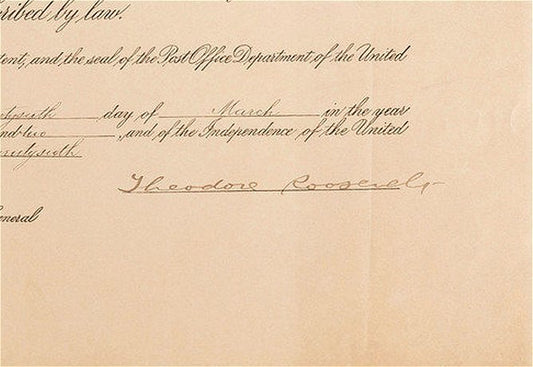 ribed by law.
tent, and the seal of the Post Office Department of the United
tysixth day of March in the year
nd two, and of the Independence of the United
entysixth
Theodore Roosevelt
eneral